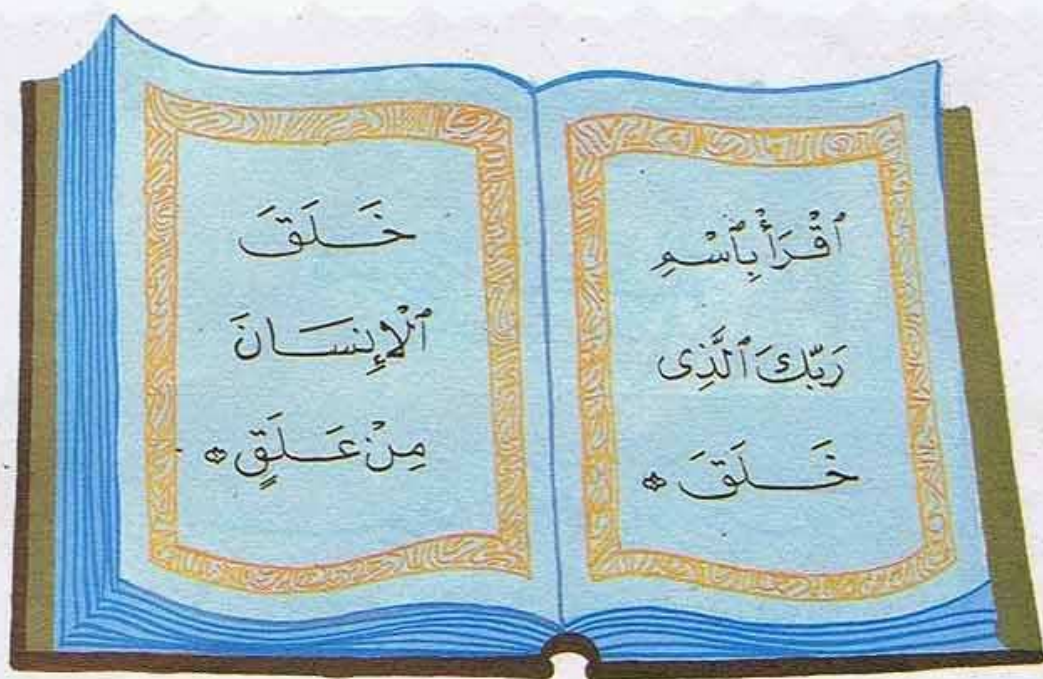 ٱقْرَأْ بِٱسْمِ
رَبِّكَ ٱلَّذِى
خَلَقَ
خَلَقَ
ٱلْإِنسَانَ
مِنْ عَلَقٍ